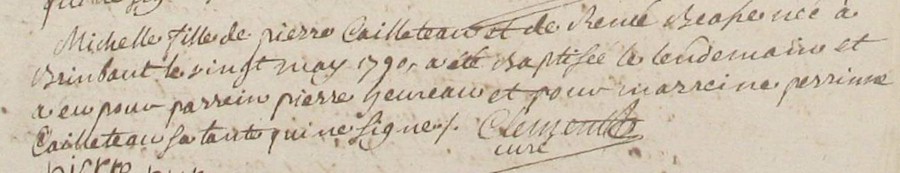 Michelle fille de pierre Cailleteau et de Renée née à
Brinbaut le vingt may 1790, a été Baptisée le lendemain et
a eu pour parrein pierre heureau et pour marreine perrinne
Cailleteau sa tante qui ne signe /. Clement
curé
pierre